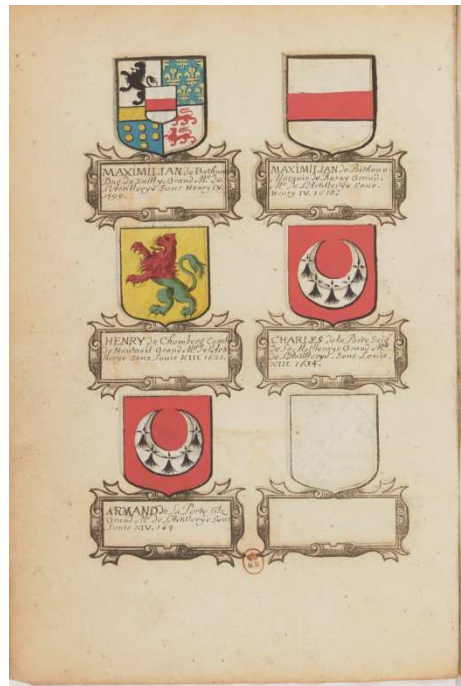 MAXIMILIAN de Bethune
Duc de Suilly. Grand Mr. de
l'Artilleryé Sous Henry IV.
1599.
MAXIMILIAN de Bethune
Marquis de Rosny Grand
Mr. de l'Artilleryé Sous
Henry IV. 1610.
HENRY de Chomberg Comte
de Nantueil Grand Mr. de l'Artil
leryé Sous Louis XIII. 1621.
CHARLES de la Porte Seigr
de la Meilleraye Grand Mr
de l'Artilleryé Sous Louis
XIII. 1634.
ARMAND de la Porte fils
Grand Mr. de l'Artilleryé Sous
Louis XIV. 164